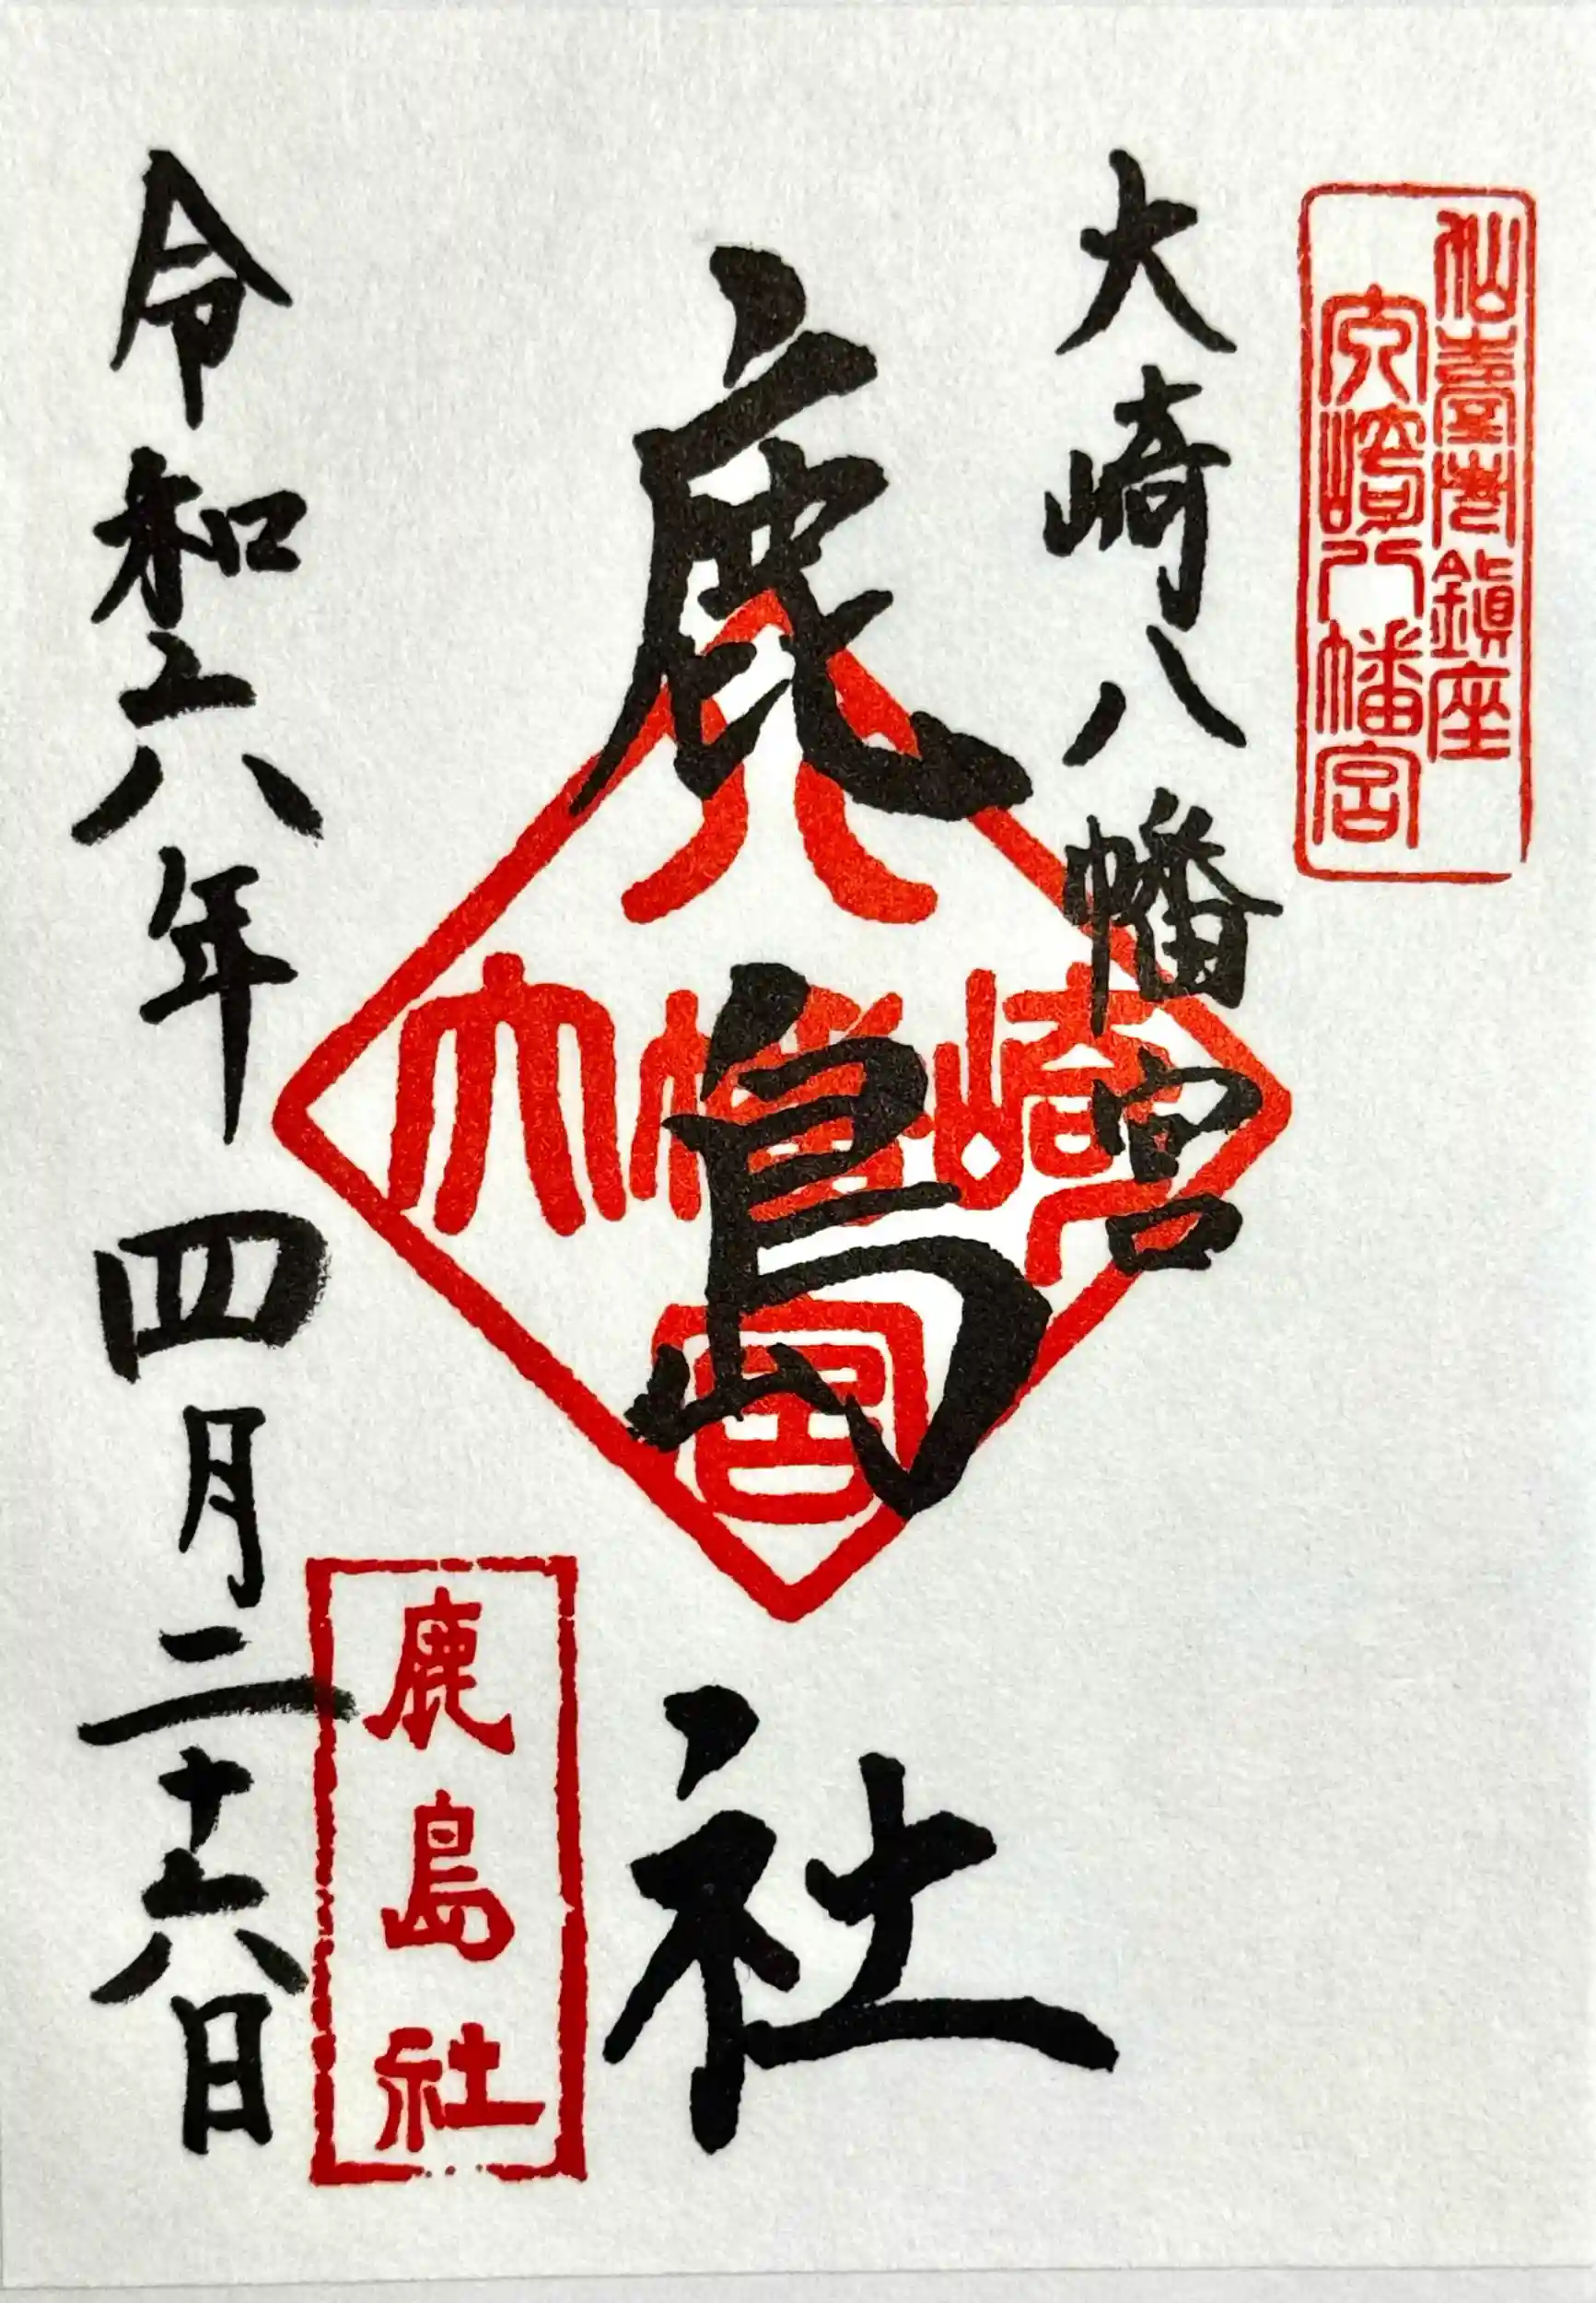 仙臺市鎮座
大崎八幡宮
大崎八幡宮
鹿島社
大崎八幡宮
鹿島社
令和六年四月二十六日